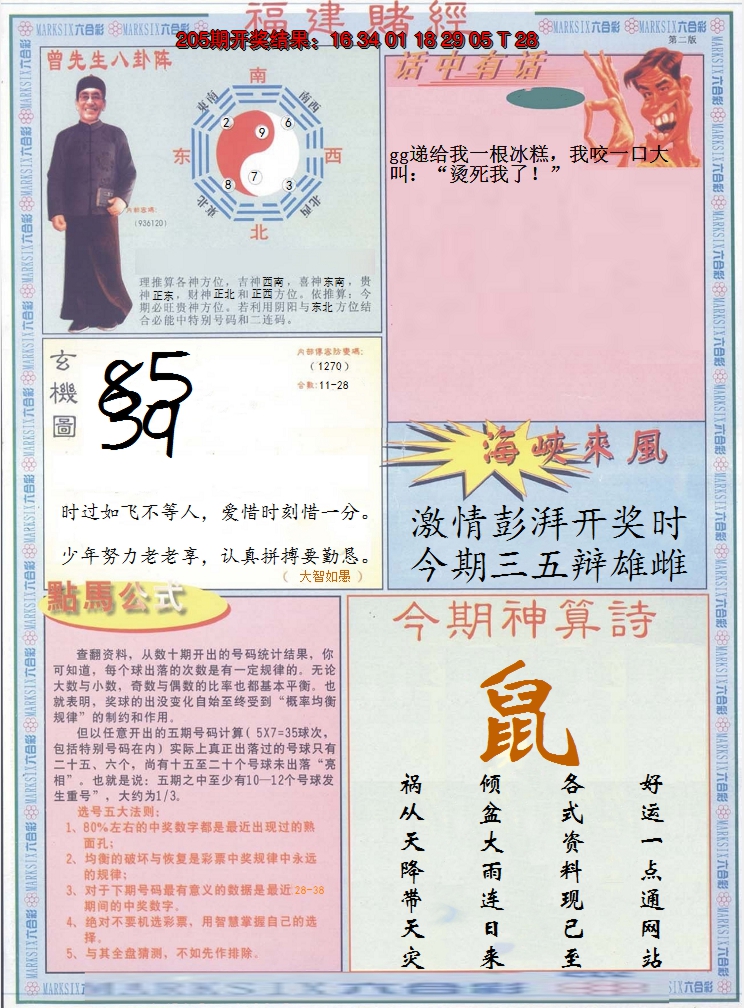 福建賭經
MARKSIX六合彩 MARKSIX六合彩 MARKSIX六合彩 MARKSIX六合彩
205期开奖结果：16 34 01 18 29 05 T 28
第二版
曾先生八卦阵
南
東南
南西
2
9
6
东
西
8
7
3
東北
北西
北
内部密碼：
（936120）
理推算各神方位，吉神西南，喜神东南，贵
神正东，财神正北和正西方位。依推算：今
期必旺贵神方位。若利用阴阳与东北方位结
合必能中特别号码和二连码。
话中有话
gg递给我一根冰糕，我咬一口大
叫：“烫死我了！”
玄機圖
85
39
内部傳容防雙碼：
（1270）
合数：11-28
时过如飞不等人，爱惜时刻惜一分。
少年努力老老享，认真拼搏要勤恳。
（ 大智如愚 ）
海峽來風
激情彭湃开奖时
今期三五辩雄雌
點馬公式
查翻资料，从数十期开出的号码统计结果，你
可知道，每个球出落的次数是有一定规律的。无论
大数与小数，奇数与偶数的比率也都基本平衡。也
就表明，奖球的出没变化自始至终受到“概率均衡
规律”的制约和作用。
但以任意开出的五期号码计算（5X7=35球次，
包括特别号码在内）实际上真正出落过的号球只有
二十五、六个，尚有十五至二十个号球未出落“亮
相”。也就是说：五期之中至少有10—12个号球发
生重号”，大约为1/3。
选号五大法则：
1、80%左右的中奖数字都是最近出现过的熟
面孔；
2、均衡的破坏与恢复是彩票中奖规律中永远
的规律；
3、对于下期号码最有意义的数据是最近28-38
期间的中奖数字。
4、绝对不要机选彩票，用智慧掌握自己的选
择。
5、与其全盘猜测，不如先作排除。
今期神算詩
鼠
好运一点通网站
各式资料现已至
倾盆大雨连日来
祸从天降带天灾
MARKSIX六合彩